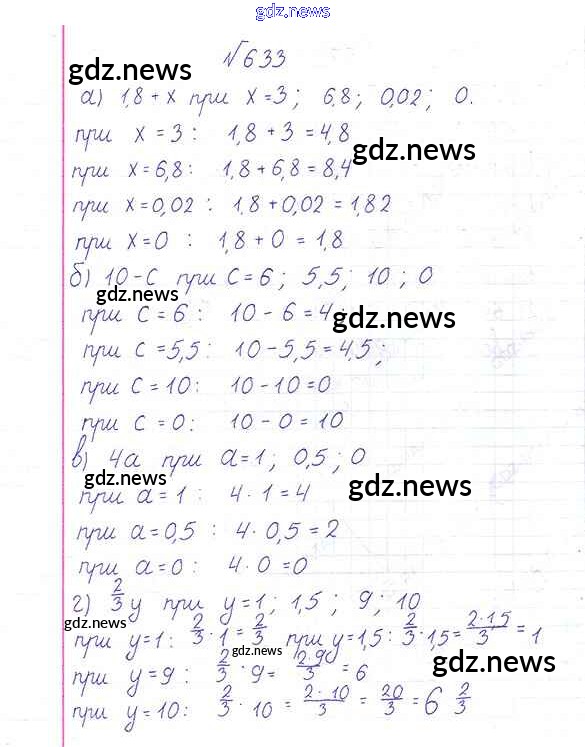 gdz.news
№633
gdz.news
а) 1,8 + x при x = 3 ; 6,8 ; 0,02 ; 0.
при x = 3 : 1,8 + 3 = 4,8
gdz.news
при x = 6,8 : 1,8 + 6,8 = 8,4
при x = 0,02 : 1,8 + 0,02 = 1,82
при x = 0 : 1,8 + 0 = 1,8
б) 10 - c при c = 6 ; 5,5 ; 10 ; 0
gdz.news
при c = 6 : 10 - 6 = 4 ;
gdz.news
при c = 5,5 : 10 - 5,5 = 4,5 ;
при c = 10 : 10 - 10 = 0
при c = 0 : 10 - 0 = 10
в) 4a при a = 1 ; 0,5 ; 0
gdz.news
gdz.news
при a = 1 : 4 · 1 = 4
при a = 0,5 : 4 · 0,5 = 2
при a = 0 : 4 · 0 = 0
г) 2/3 y при y = 1 ; 1,5 ; 9 ; 10
gdz.news
при y = 1 : 2/3 · 1 = 2/3 при y = 1,5 : 2/3 · 1,5 = 2·1,5/3 = 1
gdz.news
gdz.news
при y = 9 : 2/3 · 9 = 2·9/3 = 6
при y = 10 : 2/3 · 10 = 2·10/3 = 20/3 = 6 2/3